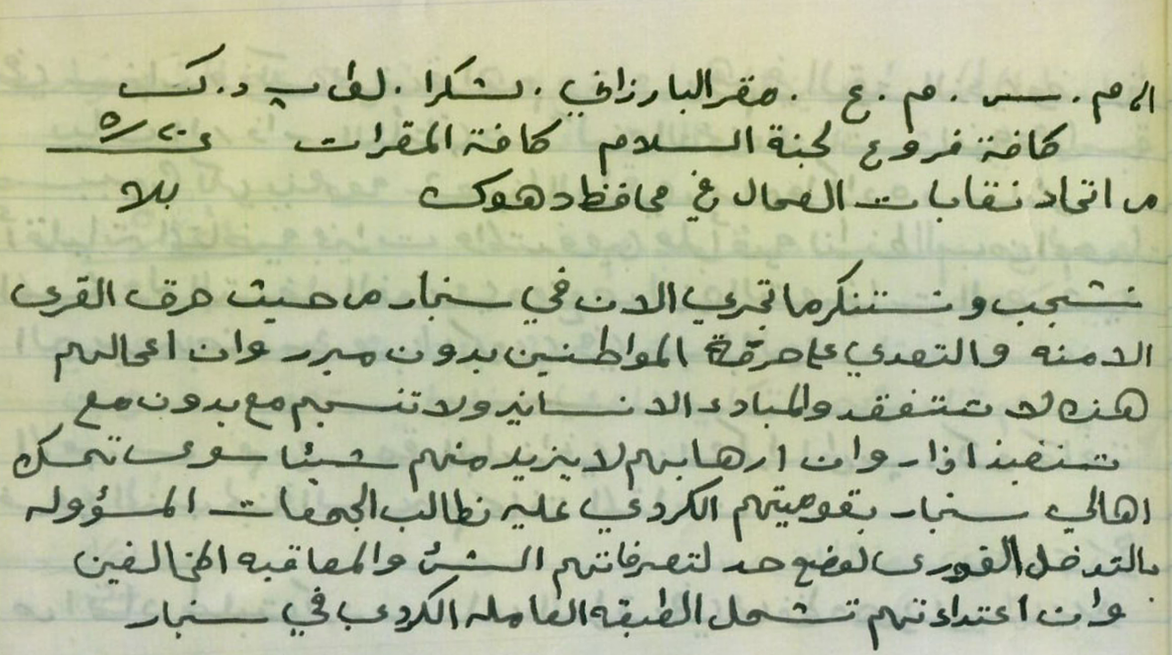 الى م . س . م . ع . مقر البارزاني . لشكرا . لق ب د . ك
كافة فروع لجنة السلام كافة المقرات ع ٢٠/٥
من اتحاد نقابات العمال في محافظ دهوك بلا
نشجب ونستنكر ما تجري الان في سنجار من حيث حرق القرى
الامنه والتعدي على حرمة المواطنين بدون مبرر وان اعمالهم
هذه لا تتفقد والمبادء الانسانيه ولا تنسجم مع بدون مع
تنفيذ اذار وان ارهابهم لا يزيد منهم شيئا سوى تمسك
اهالي سنجار بقوميتهم الكردي عليه نطالب الجهات المسؤوله
بالتدخل الفورى لوضع حد لتصرفاتهم الشئ والمعاقبه المخالفين
وان اعتداءتهم تشمل الطبقه العامله الكردي في سنجار